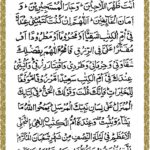 أَنْتَ ظَهْرُ اللَّاجِئِينَ ۞ وَجَارُ الْمُسْتَجِيرِينَ ۞ وَ
أَمَانُ الْخَائِفِينَ ۞ اَللّٰهُمَّ إِنْ كُنْتَ كَتَبْتَنِي عِنْدَكَ
فِي أُمِّ الْكِتَابِ شَقِيًّا أَوْ مَحْرُومًا أَوْ مَطْرُودًا أَوْ
مُقْتَرًّا عَلَيَّ فِي الرِّزْقِ فَامْحُ اللّٰهُمَّ بِفَضْلِكَ
شَقَاوَتِي وَحِرْمَانِي وَطَرْدِي وَاقْتِتَارَ رِزْقِي وَأَثْبِتْنِي
عِنْدَكَ فِي أُمِّ الْكِتَابِ سَعِيدًا مَرْزُوقًا مُوَفَّقًا
لِلْخَيْرَاتِ ۞ فَإِنَّكَ قُلْتَ وَقَوْلُكَ الْحَقُّ فِي كِتَابِكَ
الْمُنَزَّلِ عَلَى لِسَانِ نَبِيِّكَ الْمُرْسَلِ يَمْحُو اللّٰهُ مَا
يَشَاءُ وَيُثْبِتُ وَعِنْدَهُ أُمُّ الْكِتَابِ إِلٰهِي بِالتَّجَلِّي
الْأَعْظَمِ فِي لَيْلَةِ النِّصْفِ مِنْ شَهْرِ شَعْبَانَ الْمُكَرَّمِ